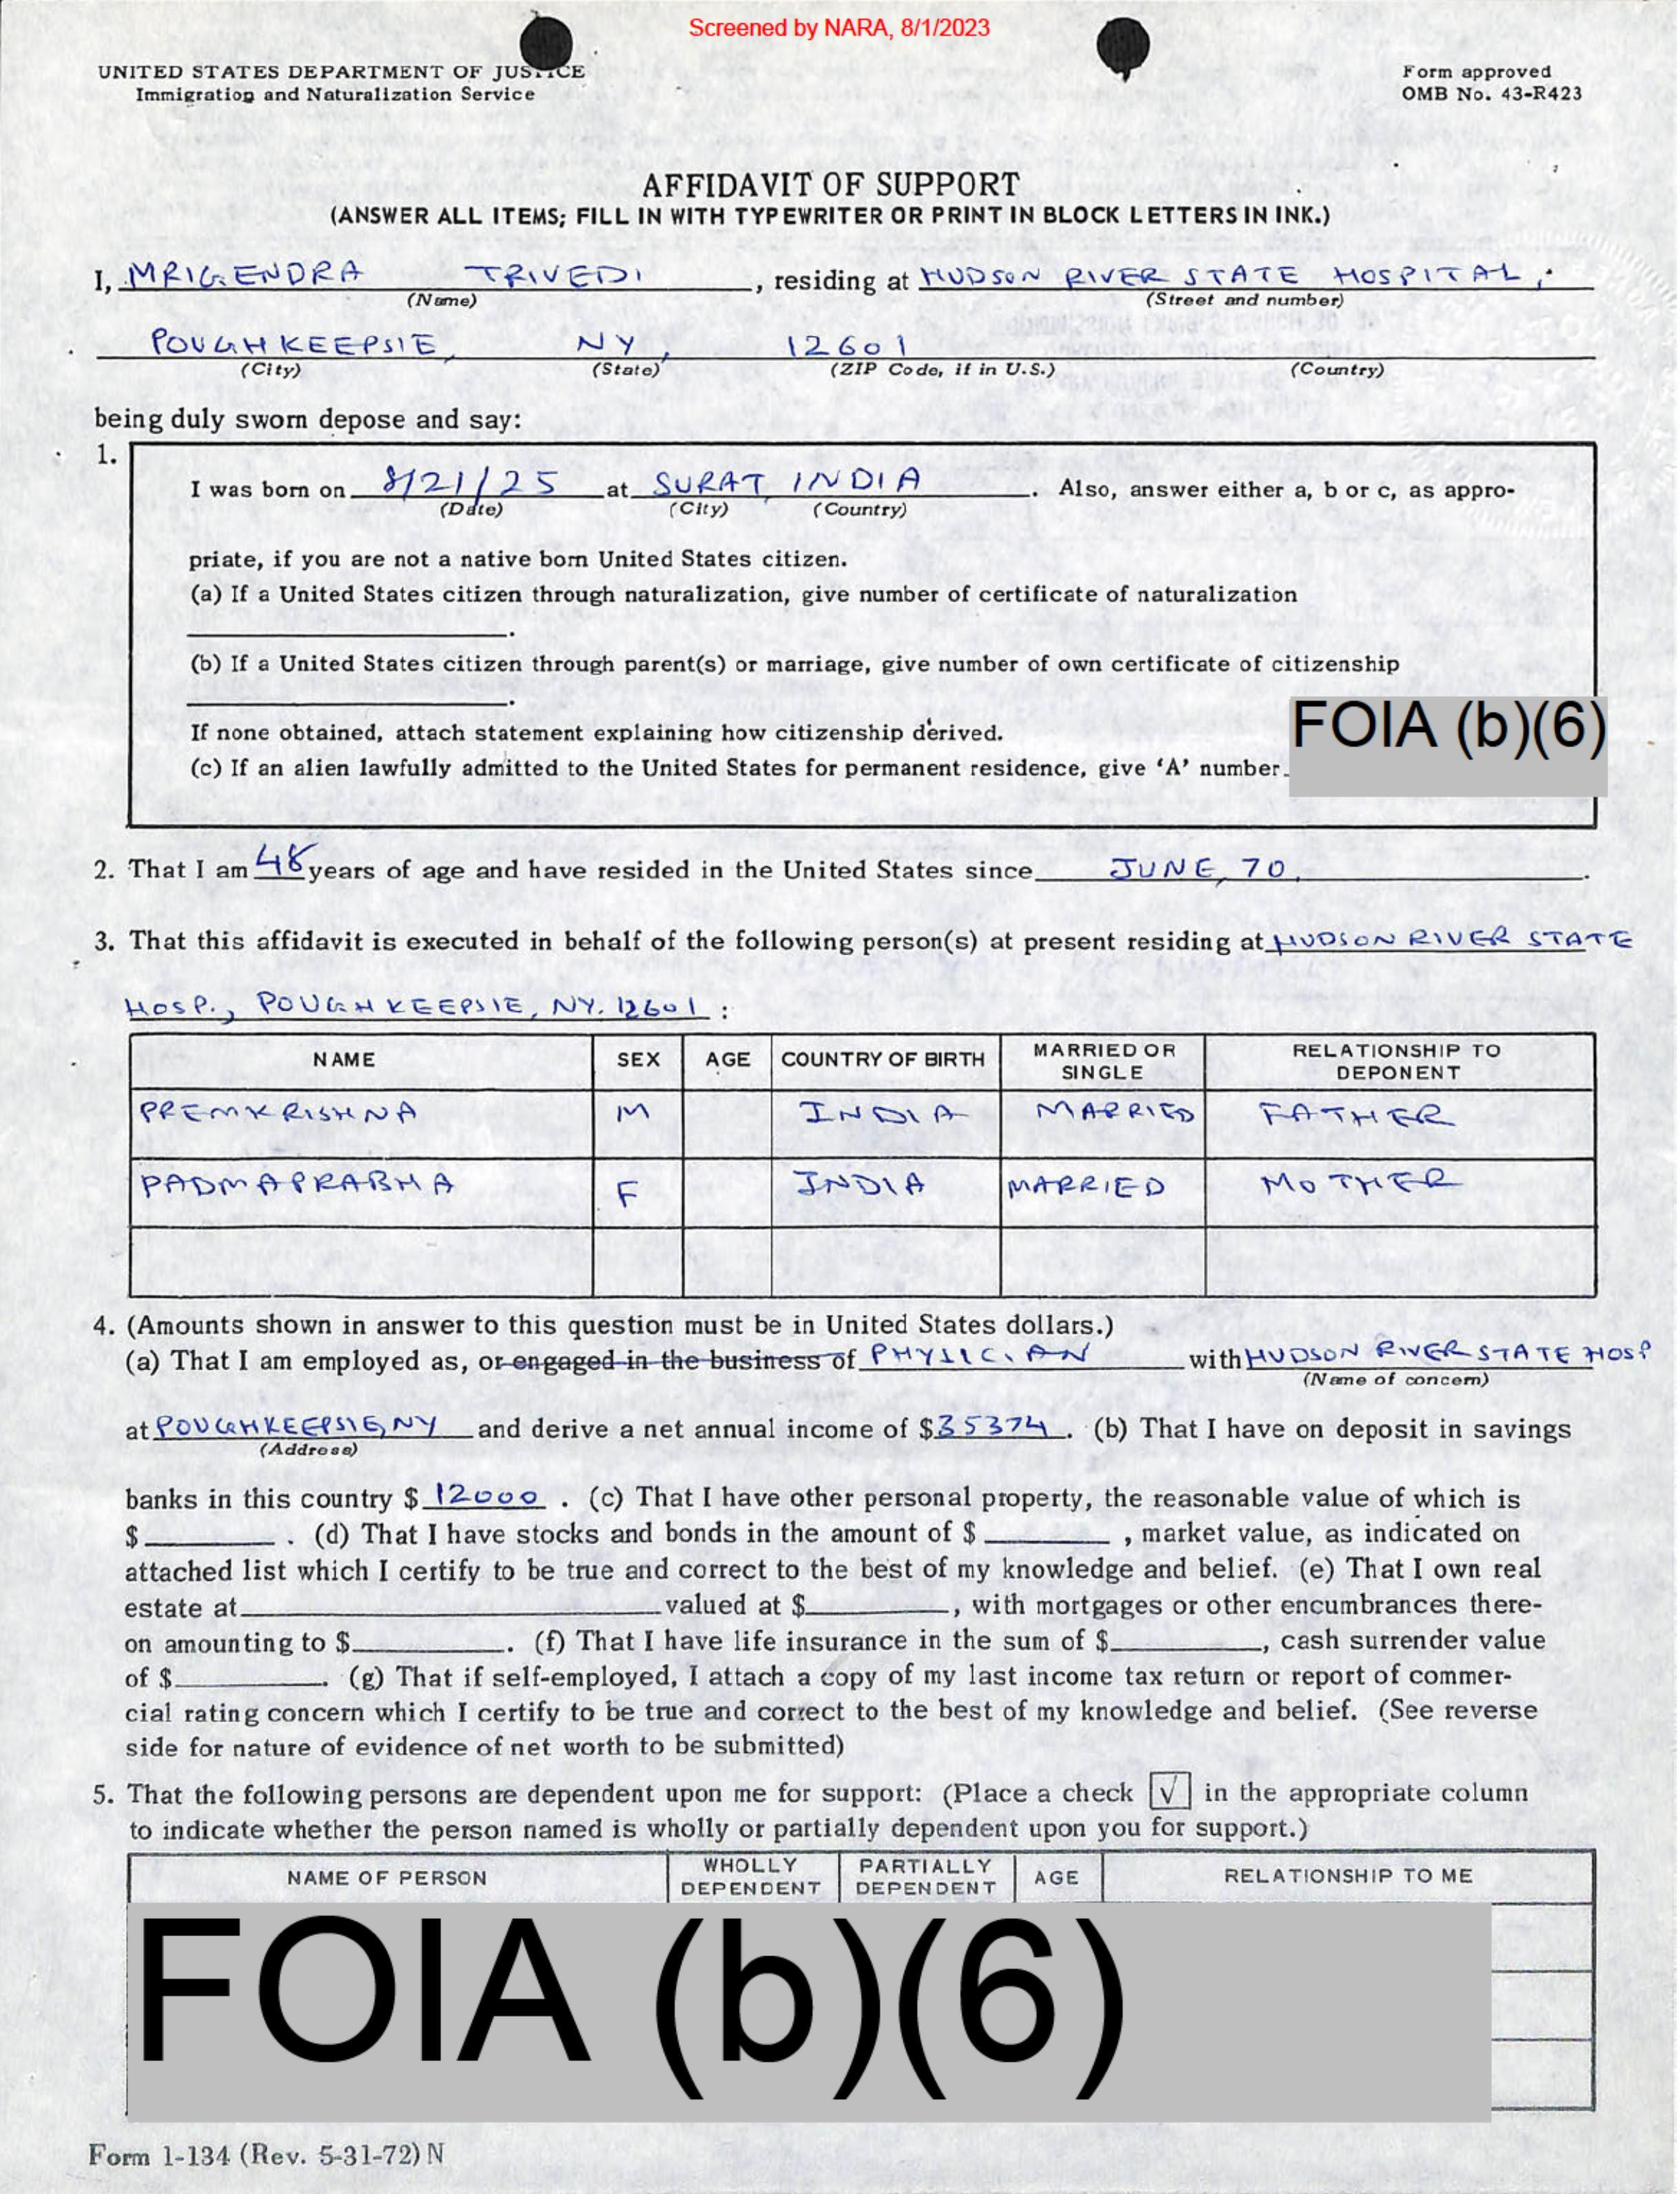 Screened by NARA, 8/1/2023
UNITED STATES DEPARTMENT OF JUSTICE
Immigration and Naturalization Service
Form approved
OMB No. 43-R423
AFFIDAVIT OF SUPPORT
(ANSWER ALL ITEMS; FILL IN WITH TYPEWRITER OR PRINT IN BLOCK LETTERS IN INK.)
I, MRIGENDRA TRIVEDI, residing at HUDSON RIVER STATE HOSPITAL,
(Name) (Street and number)
POUGHKEEPSIE, NY, 12601
(City) (State) (ZIP Code, if in U.S.) (Country)
being duly sworn depose and say:
1.
I was born on 8/21/25 at SURAT, INDIA. Also, answer either a, b or c, as appro-
(Date) (City) (Country)
priate, if you are not a native born United States citizen.
(a) If a United States citizen through naturalization, give number of certificate of naturalization
.
(b) If a United States citizen through parent(s) or marriage, give number of own certificate of citizenship
.
If none obtained, attach statement explaining how citizenship derived.
(c) If an alien lawfully admitted to the United States for permanent residence, give 'A' number FOIA (b)(6)
2. That I am 48 years of age and have resided in the United States since JUNE, 70.
3. That this affidavit is executed in behalf of the following person(s) at present residing at HUDSON RIVER STATE
HOSP., POUGHKEEPSIE, NY. 12601 :
NAME SEX AGE COUNTRY OF BIRTH MARRIED OR SINGLE RELATIONSHIP TO DEPONENT
PREMKRISHNA M INDIA MARRIED FATHER
PADMAPRABHA F INDIA MARRIED MOTHER
4. (Amounts shown in answer to this question must be in United States dollars.)
(a) That I am employed as, or engaged in the business of PHYSICIAN with HUDSON RIVER STATE HOSP
(Name of concern)
at POUGHKEEPSIE, NY and derive a net annual income of $35374. (b) That I have on deposit in savings
(Address)
banks in this country $ 12000 . (c) That I have other personal property, the reasonable value of which is
$ . (d) That I have stocks and bonds in the amount of $ , market value, as indicated on
attached list which I certify to be true and correct to the best of my knowledge and belief. (e) That I own real
estate at valued at $ , with mortgages or other encumbrances there-
on amounting to $ . (f) That I have life insurance in the sum of $ , cash surrender value
of $ . (g) That if self-employed, I attach a copy of my last income tax return or report of commer-
cial rating concern which I certify to be true and correct to the best of my knowledge and belief. (See reverse
side for nature of evidence of net worth to be submitted)
5. That the following persons are dependent upon me for support: (Place a check √ in the appropriate column
to indicate whether the person named is wholly or partially dependent upon you for support.)
NAME OF PERSON WHOLLY DEPENDENT PARTIALLY DEPENDENT AGE RELATIONSHIP TO ME
FOIA (b)(6)
Form I-134 (Rev. 5-31-72) N